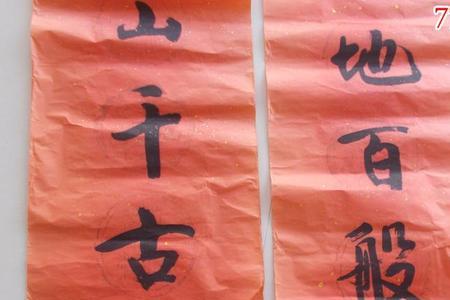 地百般
山千古
7